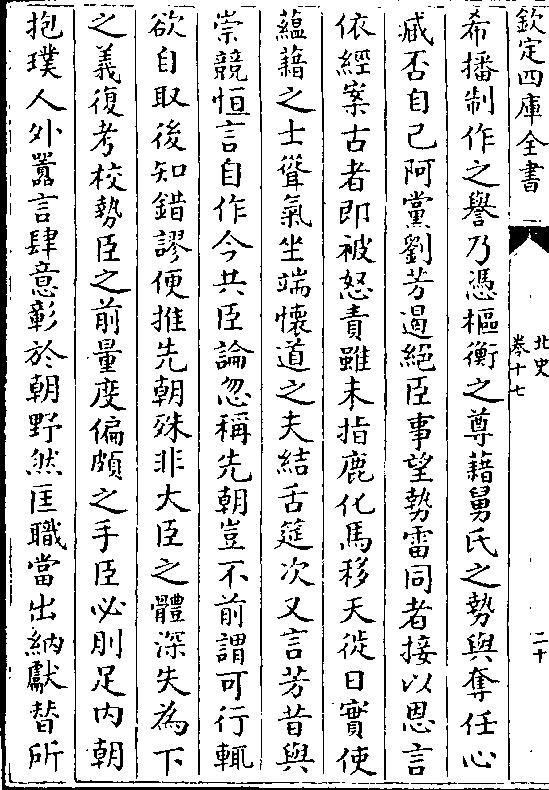 欽定四庫全書
北史
卷十七
二十
希播制作之譽乃憑樞衡之尊藉舅氏之勢與奪任心
臧否自己阿黨劉芳遏絕臣事望勢雷同者接以恩言
依經案古者即被怒責雖未指鹿化馬移天徙日實使
蘊藉之士聳氣坐端懷道之夫結舌筵次又言芳昔與
崇競恒言自作今共臣論忽稱先朝豈不前謂可行輒
欲自取後知錯謬便推先朝殊非大臣之體深失為下
之義復考校勢臣之前量度偏頗之手臣必刖足内朝
抱璞人外囂言肆意彰於朝野然匡職當出納獻替所